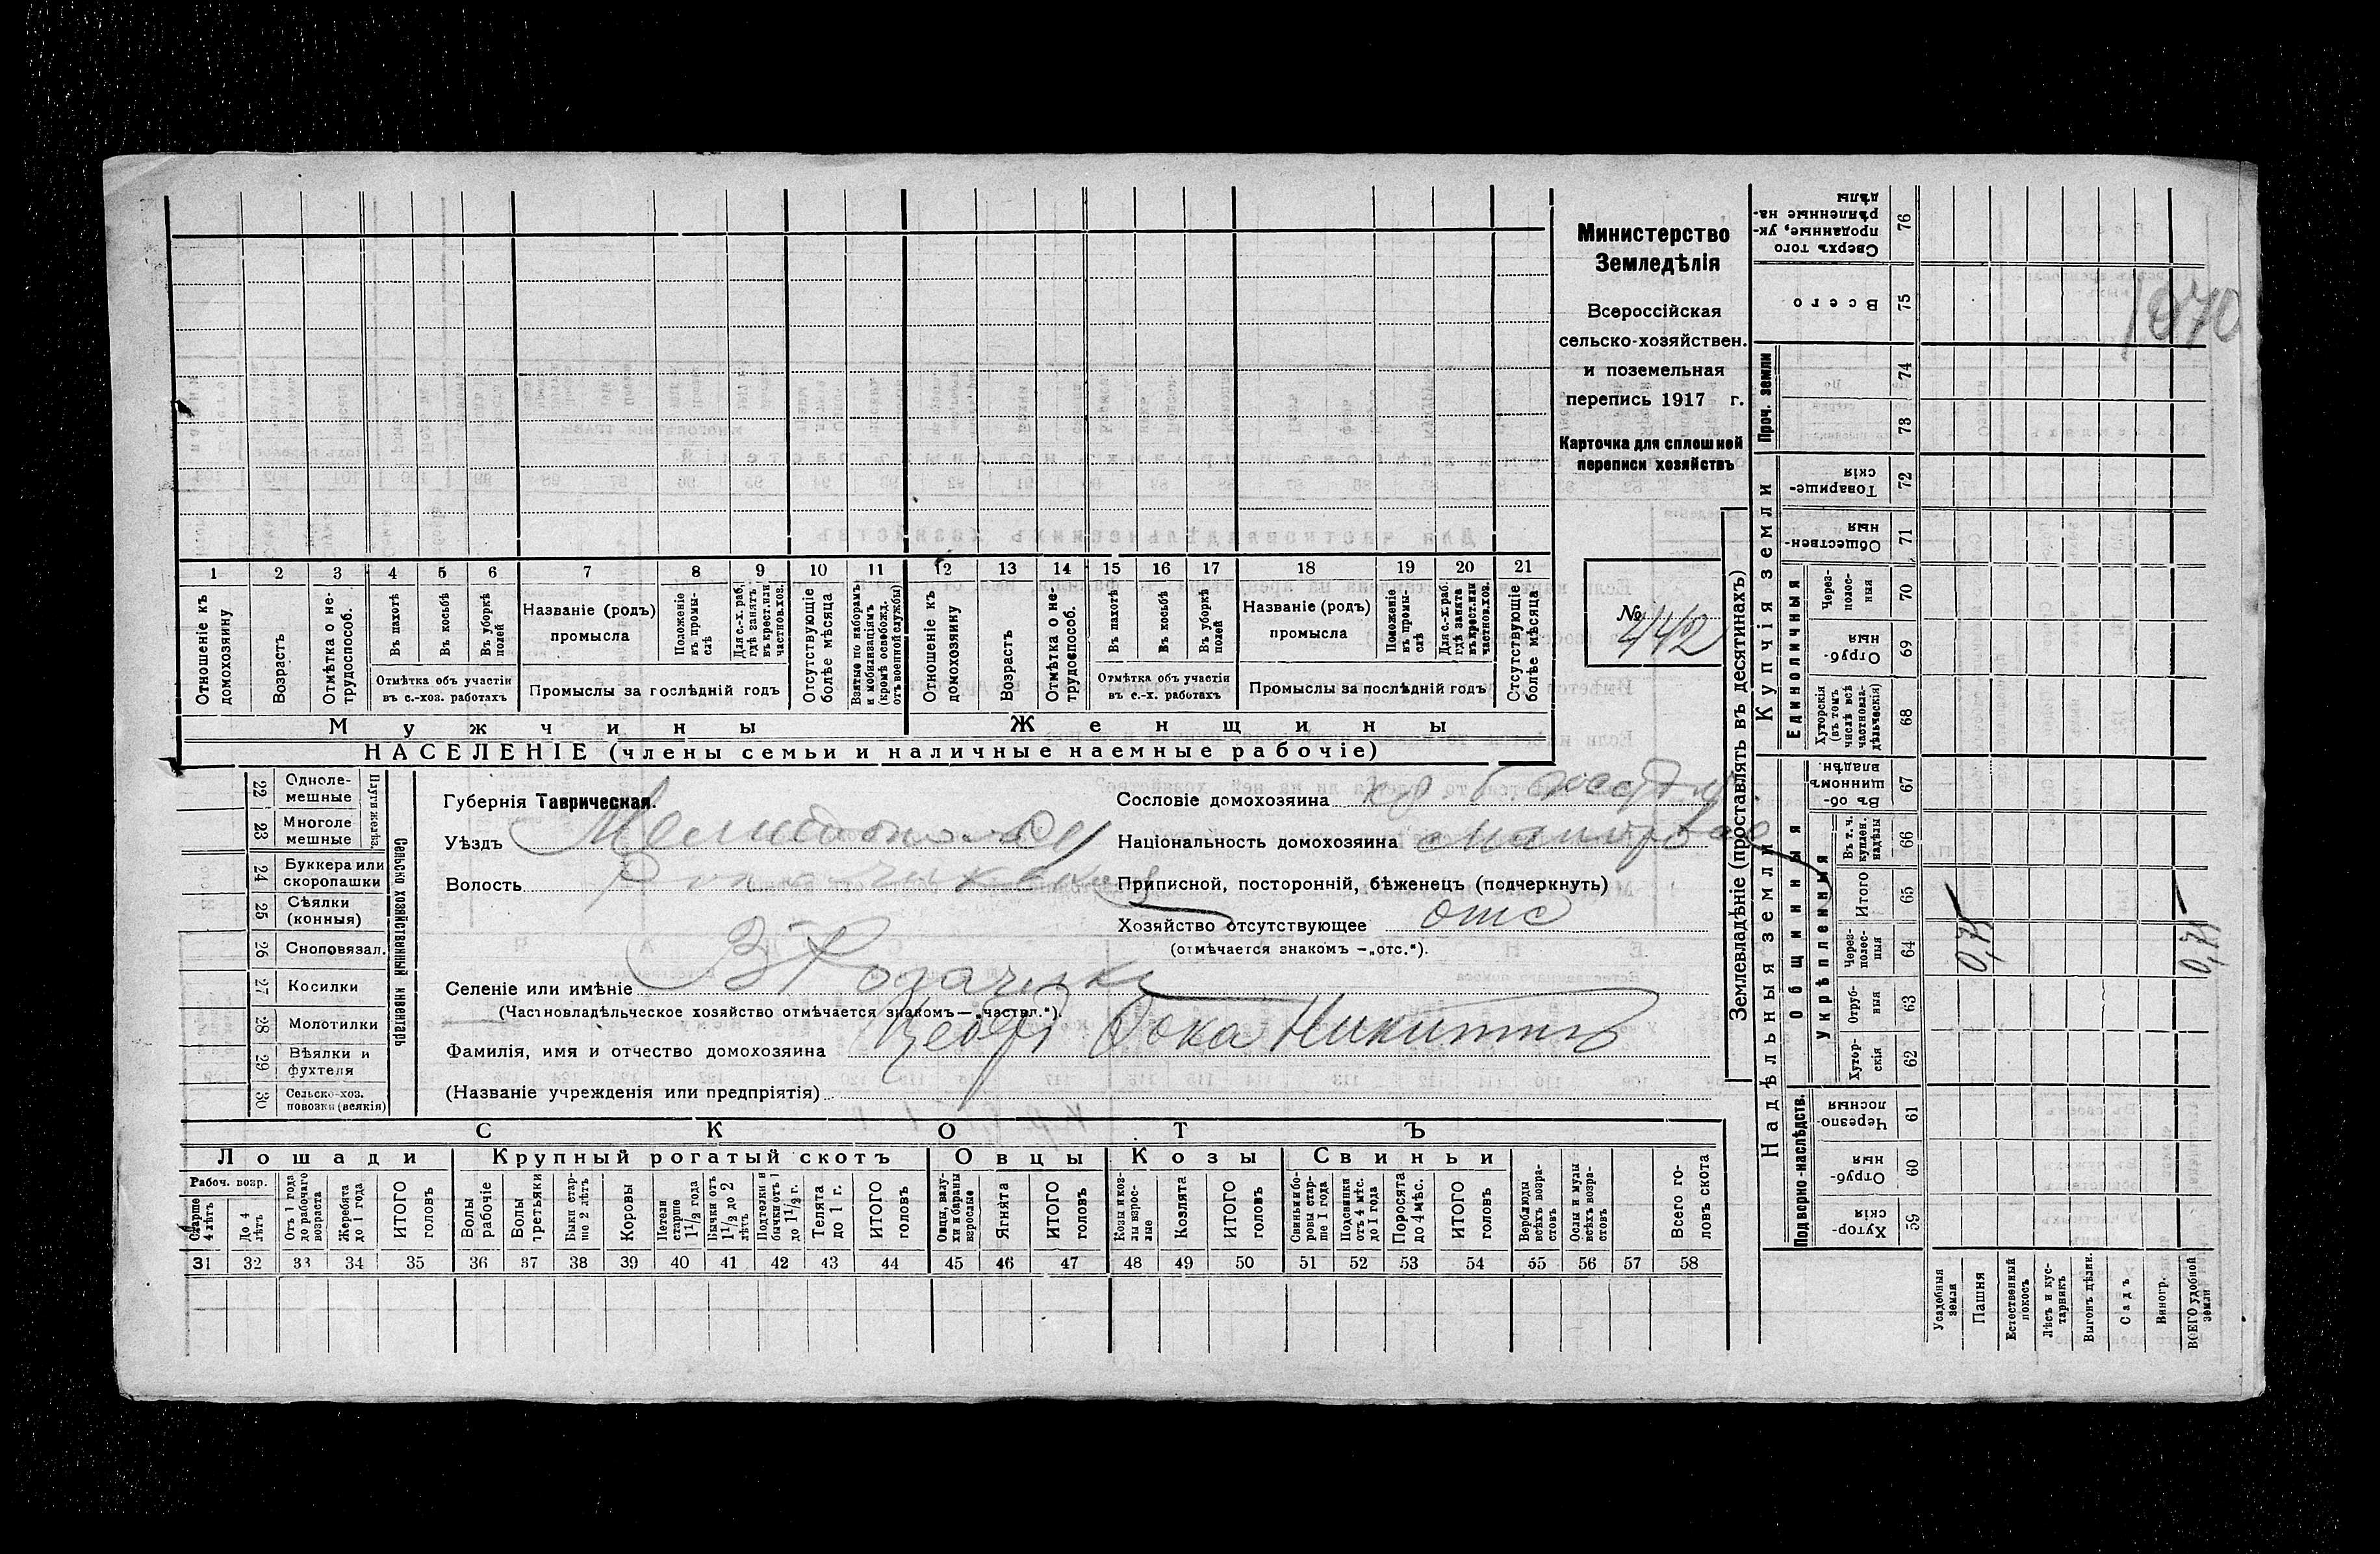 Министерство
Земледѣлія
Всероссійская
сельско-хозяйствен.
и поземельная
перепись 1917 г.
Карточка для сплошной
переписи хозяйствъ
№ 442
1070
1 2 3 4 5 6 7 8 9 10 11 12 13 14 15 16 17 18 19 20 21
Отношеніе къ домохозяину
Возрастъ
Отмѣтка о нетрудоспособ.
Въ пахотѣ
Въ косьбѣ
Въ уборкѣ полей
Отмѣтка объ участіи въ с.-хоз. работахъ
Названіе (родъ) промысла
Положеніе въ промыслѣ
Для с.-х. раб. гдѣ занятъ въ крест. или частнов. хоз.
Промыслы за послѣдній годъ
Отсутствующіе болѣе мѣсяца
Взятые по наборамъ и мобилизаціямъ (кромѣ освобожд. отъ военной службы)
Отношеніе къ домохозяину
Возрастъ
Отмѣтка о нетрудоспособ.
Въ пахотѣ
Въ косьбѣ
Въ уборкѣ полей
Отмѣтка объ участіи въ с.-х. работахъ
Названіе (родъ) промысла
Положеніе въ промыслѣ
Для с.-х. раб. гдѣ занята въ крест. или частнов. хоз.
Промыслы за послѣдній годъ
Отсутствующіе болѣе мѣсяца
Мужчины Женщины
НАСЕЛЕНІЕ (члены семьи и наличные наемные рабочіе)
Сельско хозяйственный инвентарь
Плуги желѣз.
22 Одноле-мешные
23 Многоле мешные
24 Буккера или скоропашки
25 Сѣялки (конныя)
26 Сноповязал.
27 Косилки
28 Молотилки
29 Вѣялки и фухтеля
30 Сельско-хоз. повозки (всякія)
Губернія Таврическая.
Уѣздъ
Волость
Селеніе или имѣніе В Рогачик
(Частновладѣльческое хозяйство отмѣчается знакомъ — „частвл.“).
Фамилія, имя и отчество домохозяина Фока Никитинъ
(Названіе учрежденія или предпріятія)
Сословіе домохозяина
Національность домохозяина
Приписной, посторонній, бѣженецъ (подчеркнуть)
Хозяйство отсутствующее отс
(отмѣчается знакомъ —„отс.“).
СКОТЪ
Лошади Крупный рогатый скотъ Овцы Козы Свиньи
Рабоч. возр.
Старше 4 лѣтъ
До 4 лѣтъ
Отъ 1 года до рабочаго возраста
Жеребята до 1 года
ИТОГО головъ
Волы рабочіе
Волы третьяки
Быки старше 2 лѣтъ
Коровы
Нетели старше 1½ года
Бычки отъ 1½ до 2 лѣтъ
Подтелки и бычки отъ 1 до 1½ г.
Телята до 1 г.
ИТОГО головъ
Овцы, валухи и бараны взрослые
Ягнята
ИТОГО головъ
Козы и козлы взрослые
Козлята
ИТОГО головъ
Свиньи и боровы старше 1 года
Подсвинки отъ 4 мѣс. до 1 года
Поросята до 4 мѣс.
ИТОГО головъ
Верблюды всѣхъ возрастовъ
Ослы и мулы всѣхъ возрастовъ
Всего головъ скота
31 32 33 34 35 36 37 38 39 40 41 42 43 44 45 46 47 48 49 50 51 52 53 54 55 56 57 58
Землевладѣніе (проставлять въ десятинахъ)
Надѣльныя земли
Купчія земли
Проч. земли
Подворно-наслѣдств.
Общинныя
Укрѣпленныя
Единоличныя
Хуторскія 59
Отрубныя 60
Черезполосныя 61
Хуторскія 62
Отрубныя 63
Черезполосныя 64
Итого 65
Въ т. ч. куплен. надѣлы 66
Въ общинномъ владѣн. 67
Хуторскія (въ томъ числѣ всѣ частновладѣльческія) 68
Отрубныя 69
Черезполосныя 70
Общественныя 71
Товарищескія 72
73
74
Всего 75
Сверхъ того проданные, укрѣпленные надѣлы 76
Усадебныя земли
Пашня
Естественный покосъ
Лѣсъ и кустарникъ
Выгонъ дѣлин.
Садъ
Виногр.
ВСЕГО удобной земли
0,75
0,75